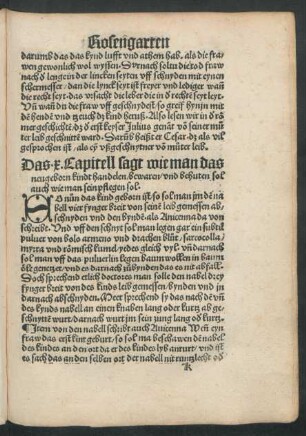 Rosengarten
darumb das das kynd lufft vnd athem hab. als die fra
wen gewonlich wol wyssen. Darnach soltu die tod fraw
nach d lenge in der lincken seyten vff schnyden mit eynem
schermesser / dan die lynck seyt ist freyer vnd lediger wan
die recht seyt. das vrsacht die leber die in d rechte seyt leyt.
Vn wan du die fraw vff geschnydest so greif hynyn mit
de hende vn zeuch dz kynd heruß. Also lesen wir in d rö
mer geschichte/ dz d erst keyser Julius genat vö seiner mut
ter leib geschnitte ward. Darub heißt er Cesar dz als vil
gesprochen ist / als ey vßgeschnytner vö muter leib.
Das .x. Capitell sagt wie man das
neugeborn kindt handelen bewaren vnd behuten sol
auch wie man sein pflegen sol.
nun das kind geborn ist. so sol man im de na
bel vier fynger breit von des seins leib gemessen ab
schnyden vnd den bynde. als Auicenna da von
schreibt. Vnd vff den schnyt sol man legen gar ein subtil
puluer von bolo armeno vnd drachen blut / sarcocolla /
mirra vnd römisch kumel yedes gleich vyl. vn darnach
sol man vff das puluerlin legen baumwollen in baum
öle genetzet / vnd es darnach zubynden das es nit abfall.
Doch sprechend etlich doctores man solle den nabel drey
fynger breit von des kinds leib gemessen / bynden vnd in
darnach abschnyden. Meer sprechend sy das nach de vn
des kynds nabell an einen knaben lang oder kurtz ab ge
schnytt wurt / darnach wurt im sein zung lang od kurtz.
Item von den nabell schreibt auch Auicenna Wen eyn
fraw das erst kint geburt / so sol ma beschawen de nabel
des kindes an den ort da er des kindes lyb anrurt / vnd ist
es sach das an den selben ort der nabell nit runtzlecht od
K